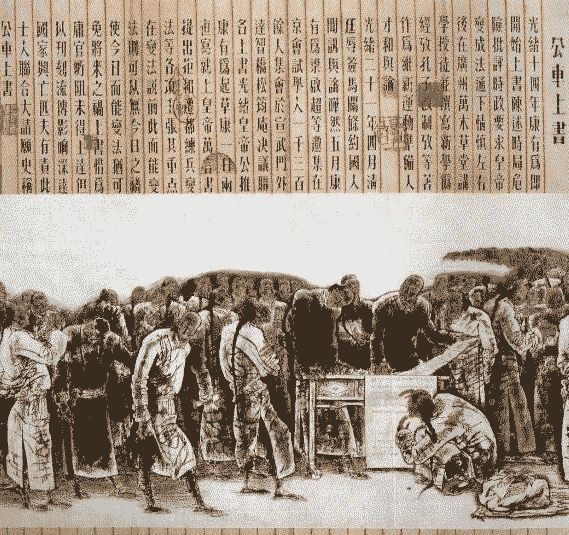 公車上書
光緒十四年康有為即
開始上書陳述時局危
險批評時政要求皇帝
變成法通下情慎左右
後在廣州萬木草堂講
學授徒撰寫新學偽
經攷孔子改制攷等著
作為維新運動準備人
才和輿論
光緒二十一年四月清
簽馬關條約國人
聞訊輿論嘩然五月康
有為梁啟超等邀集在
京會試舉人一千三百
餘人集會於宣武門外
達智橋松筠庵決議聯
名上書光緒皇帝公推
康有為起草康一日兩
夜寫就上皇帝萬言書
提出拒和遷都練兵變
法等各項主張其重点
在變法謂前此而能變
法則可以無今日之禍
使今日而能變法猶可
免將來之禍上書惜為
庸官所阻未得上達但
刊刻流傳影響深遠
國家興亡匹夫有責此
士人聯合大請願史稱
公車上書